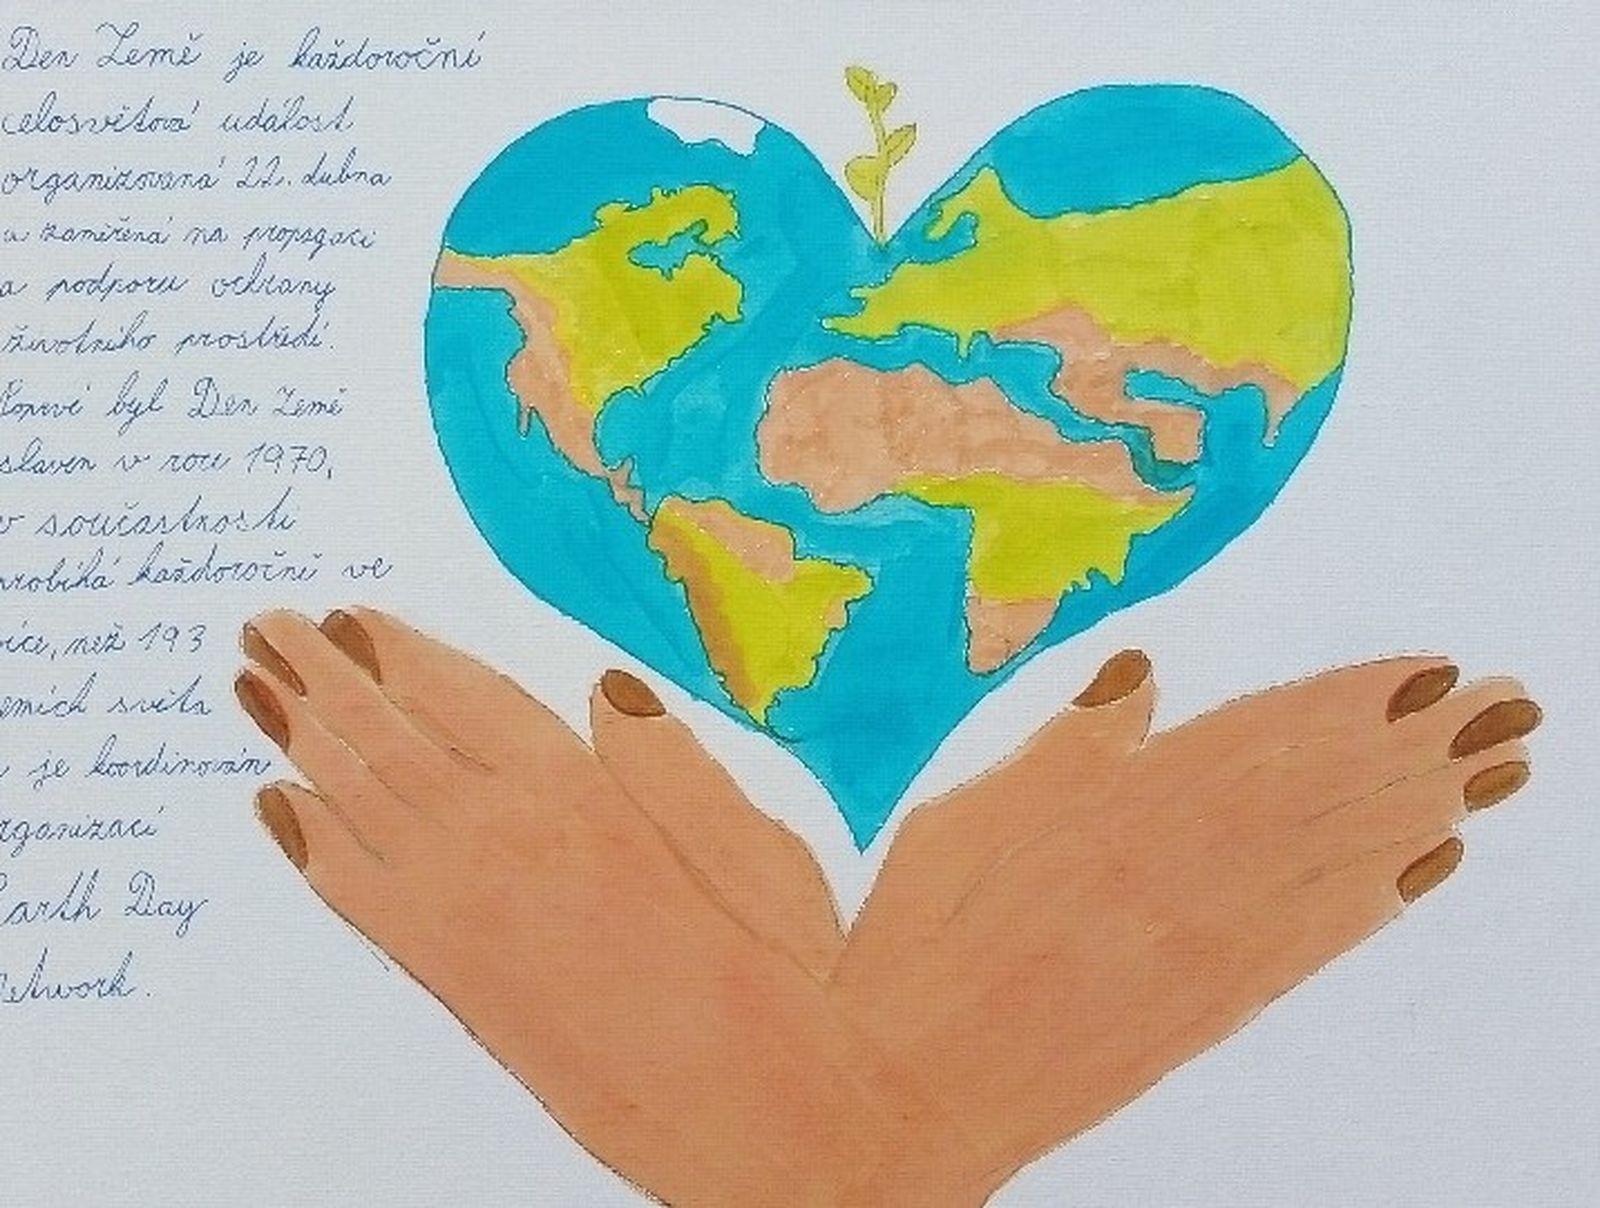 Den Země je každoroční
celosvětová událost
organizovaná 22. dubna
a zaměřená na propagaci
a podporu ochrany
životního prostředí.
Poprvé byl Den Země
slaven v roce 1970,
v součastnosti
probíhá každoročně ve
více, než 193
zemích světa
a je koordinován
organizací
Earth Day
Network.